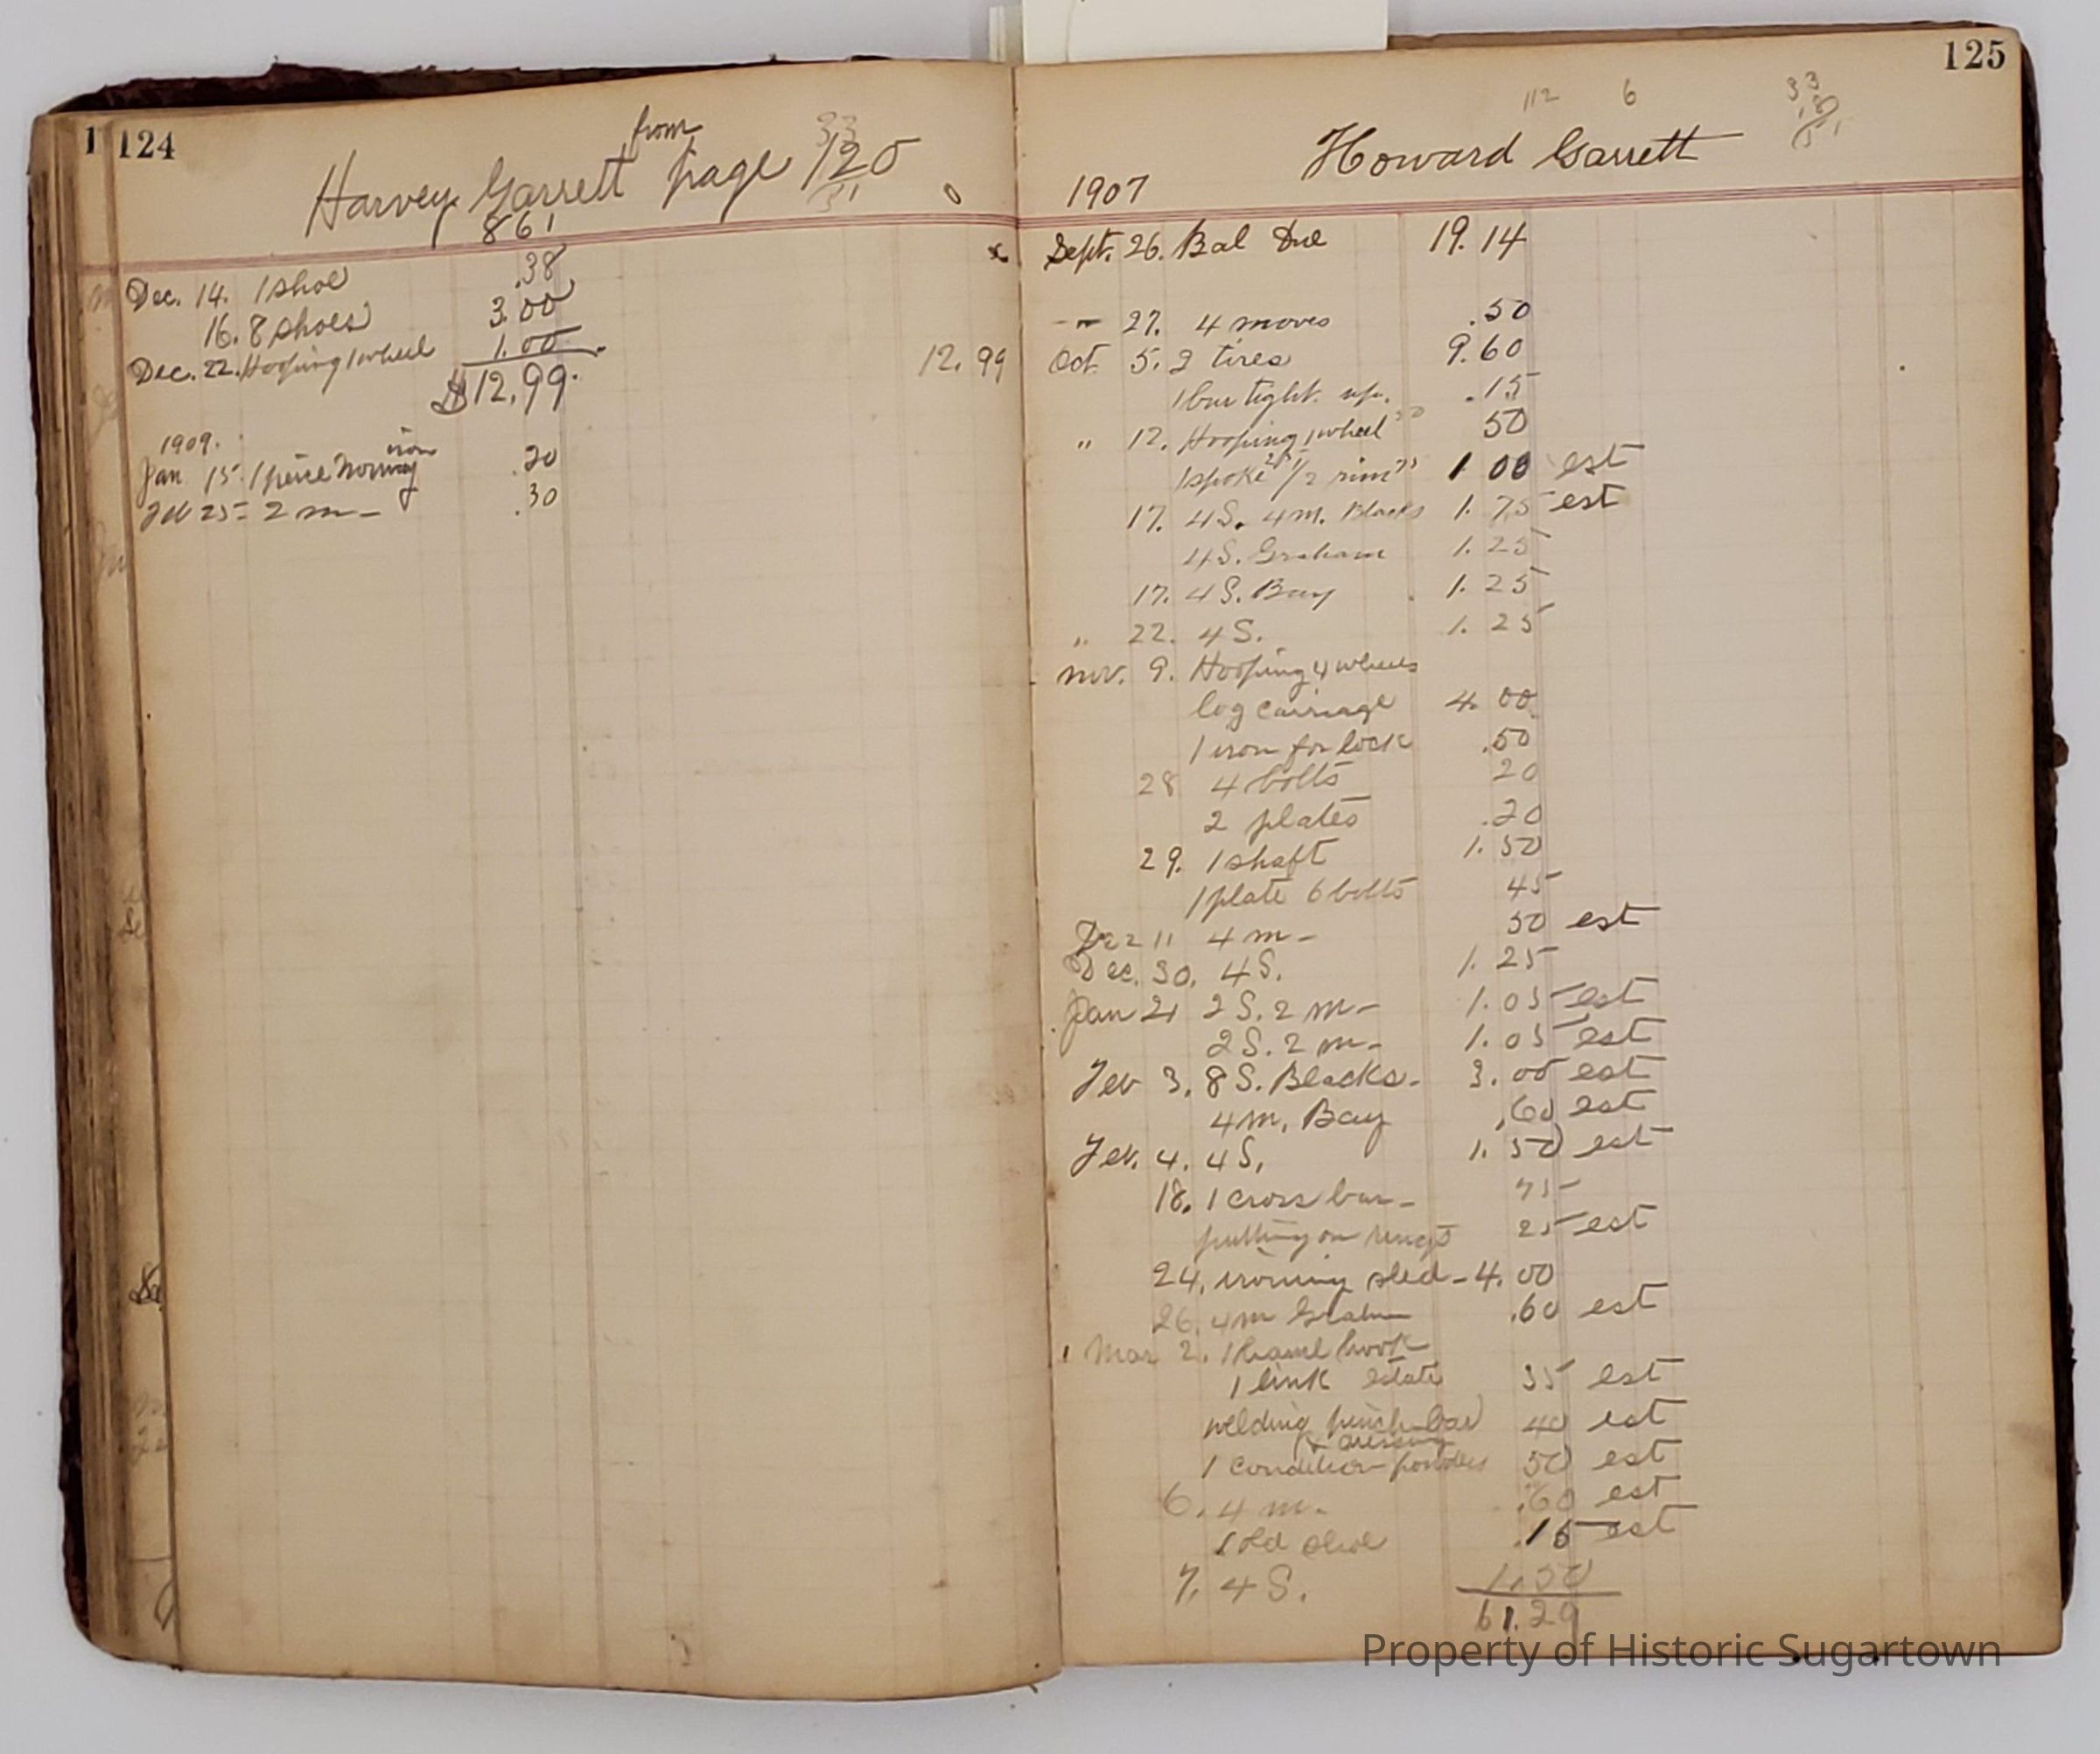 1 124
from
Harvey Garrett page 120
861
0
Dec. 14. 1 shoe .38
16. 8 shoes 3.00
Dec. 22. Hooping 1 wheel 1.00
$12.99.
12.99
1909.
Jan 15. 1 piece Norway iron .20
Feb 25 2 m- .30
125
112 6 33
Howard Garrett
1907
x Sept. 26. Bal Due 19.14
" 27. 4 moves .50
Oct. 5. 2 tires 9.60
1 bar tight. up. .15
" 12. Hooping 1 wheel 50
1 spoke 25 1/2 rim 75 1 00 est
17. 4 S. 4 m. Blacks 1.75 est
4 S. Graham 1.25
17. 4 S. Bay 1.25
" 22. 4 S. 1.25
Nov. 9. Hooping 4 wheels
log carriage 4.00
1 iron for lock .50
28 4 bolts 20
2 plates .20
29. 1 shaft 1.50
1 plate 6 bolts 45
Dec 11 4 m- 50 est
Dec. 30. 4 S. 1.25
Jan 21 2 S. 2 m- 1.05 est
2 S. 2 m- 1.05 est
Feb 3. 8 S. Blacks- 3.00 est
4 m, Bay .60 est
Feb. 4. 4 S. 1.50 est
18. 1 cross bar- 75
putting on rings 25 est
24. ironing sled - 4.00
26. 4 m Graham .60 est
Mar 2. 1 hame hook
1 link estate 35 est
welding pinch bar 40 est
& dressing
1 condition powders 50 est
6. 4 m. .60 est
1 old shoe .15 est
7. 4 S. 1.50
61.29
Property of Historic Sugartown